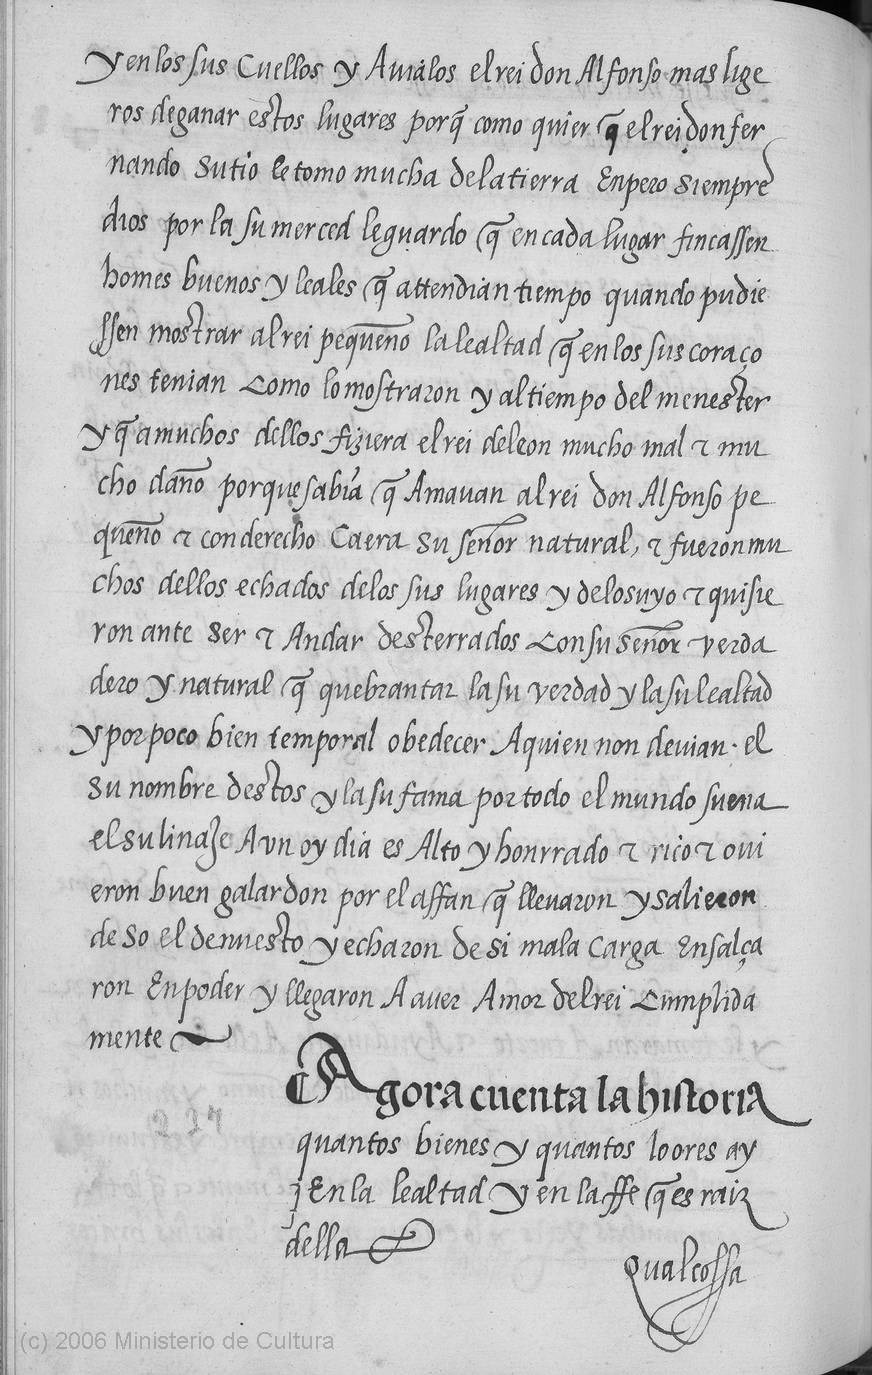 y en los sus Cuellos y Auialos el rei don Alfonso mas lige
ros de ganar estos lugares porq̃ como quier q̃ el rei don fer
nando su tio le tomo mucha de la tierra Enpero siempre
dios por la su merced le guardo q̃ en cada lugar fincassen
homes buenos y leales q̃ attendian tiempo quando pudie
ssen mostrar al rei pequeño la lealtad q̃ en los sus coraço
nes tenian Como lo mostraron y al tiempo del menester
y q̃ a muchos dellos fiziera el rei de leon mucho mal ⁊ mu
cho daño porque sabia q̃ Amauan al rei don Alfonso pe
queño ⁊ con derecho Caera su señor natural, ⁊ fueron mu
chos dellos echados de los sus lugares y de lo suyo ⁊ quisie
ron ante ser ⁊ Andar desterrados Con su señor verda
dero y natural q̃ quebrantar la su verdad y la su lealtad
y por poco bien temporal obedecer A quien non deuian. el
su nombre destos y la su fama por todo el mundo suena
el su linaje Avn oy dia es Alto y honrrado ⁊ rico ⁊ oui
eron buen galardon por el affan q̃ lleuaron y salieron
de so el denuesto y echaron de si mala Carga Ensalça
ron En poder y llegaron A auer Amor del rei Cumplida
mente
Agora cuenta la historia
quantos bienes y quantos loores ay
En la lealtad y en la ffe q̃ es raiz
della
Qual cossa
227
(c) 2006 Ministerio de Cultura